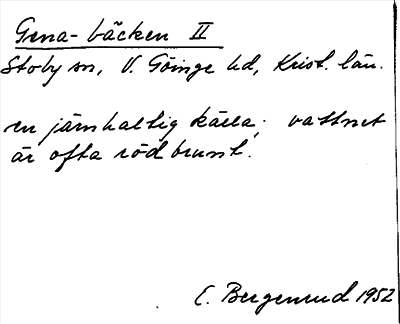 Gena-bäcken II
Stoby sn, V. Göinge hd, Krist. län.
en järnhaltig källa; vattnet
är ofta rödbrunt.
E. Bergenrud 1952